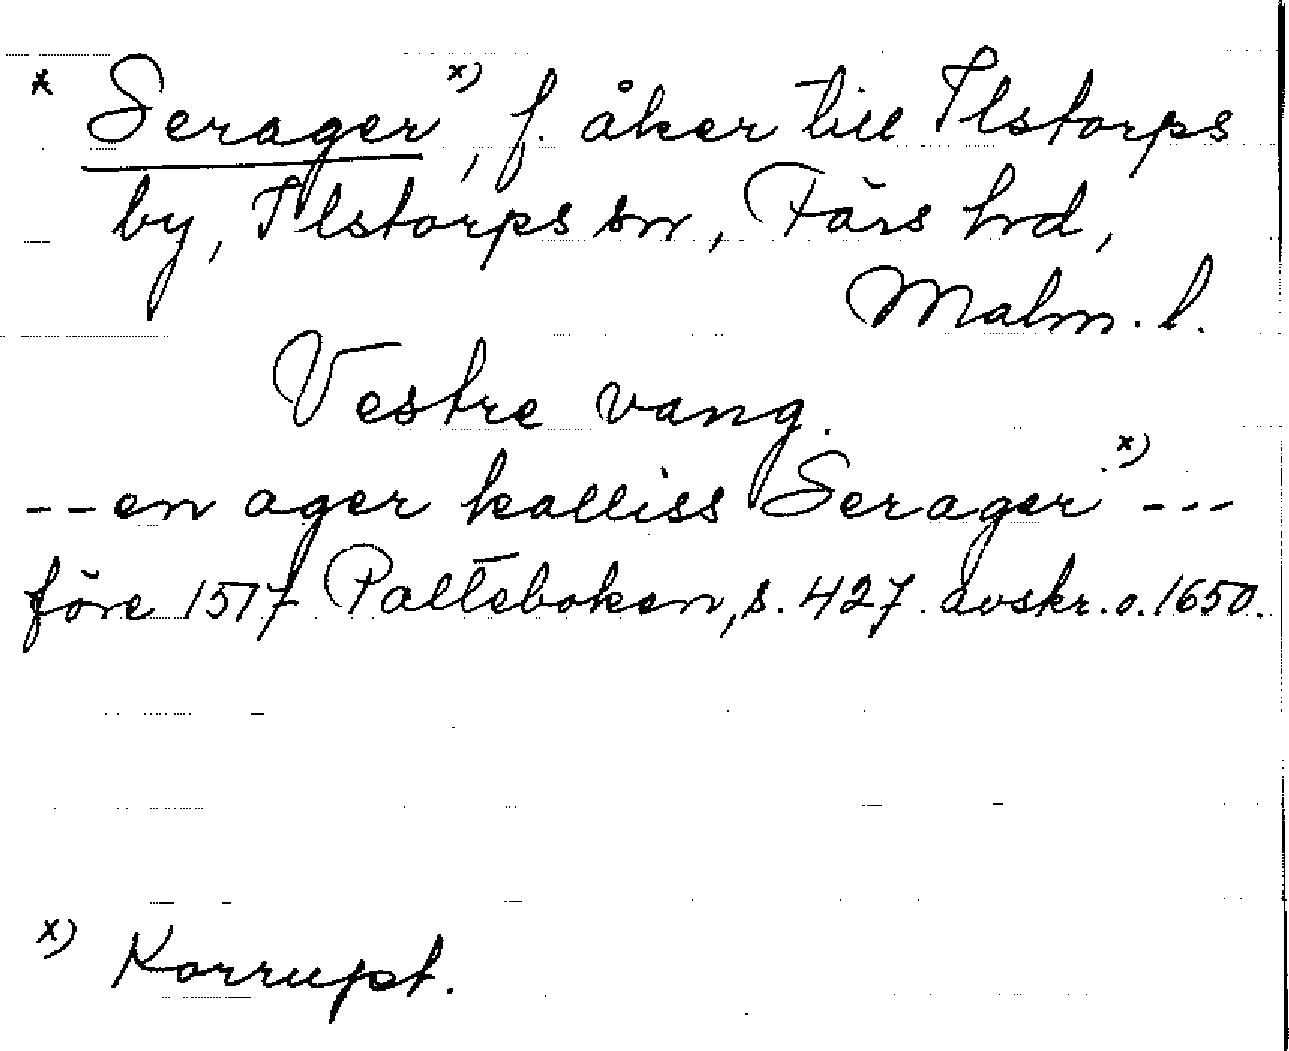 * Serager x), f. åker till Ilstorps
by, Ilstorps sn, Färs hrd,
Malm. l.
Vestre vang.
-- en ager kalliss Serager x) ---
före 1517 Palteboken, s. 427. avskr. o. 1650.
x) Korrupt.